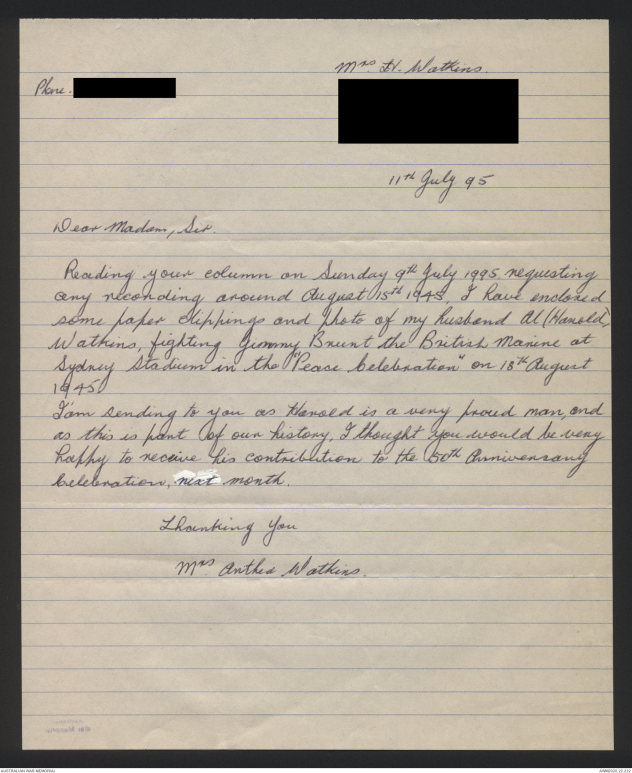 Mrs. H. Watkins.
Phone.
11th July 95
Dear Madam, Sir.
Reading your column on Sunday 9th July 1995 requesting
any recording around August 15th 1945, I have enclosed
some paper clippings and photo of my husband Al (Harold)
Watkins, fighting Jimmy Brunt the British Marine at
Sydney Stadium in the "Peace Celebration" on 18th August
1945.
I'am sending to you as Harold is a very proud man, and
as this is part of our history, I thought you would be very
happy to receive his contribution to the 50th Anniversary
Celebration, next month.
Thanking You
Mrs. Anthea Watkins.
AUSTRALIAN WAR MEMORIAL